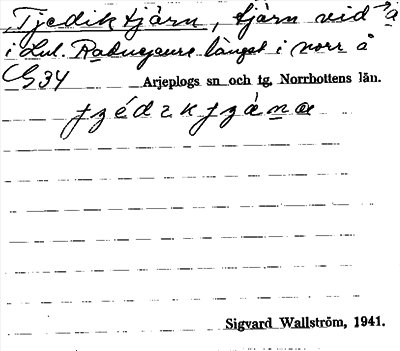 Tjediktjärn, tjärn vid å
i Lul. Raduejaure längst i norr å
G34 Arjeplogs sn och tg, Norrbottens län.
Sigvard Wallström, 1941.